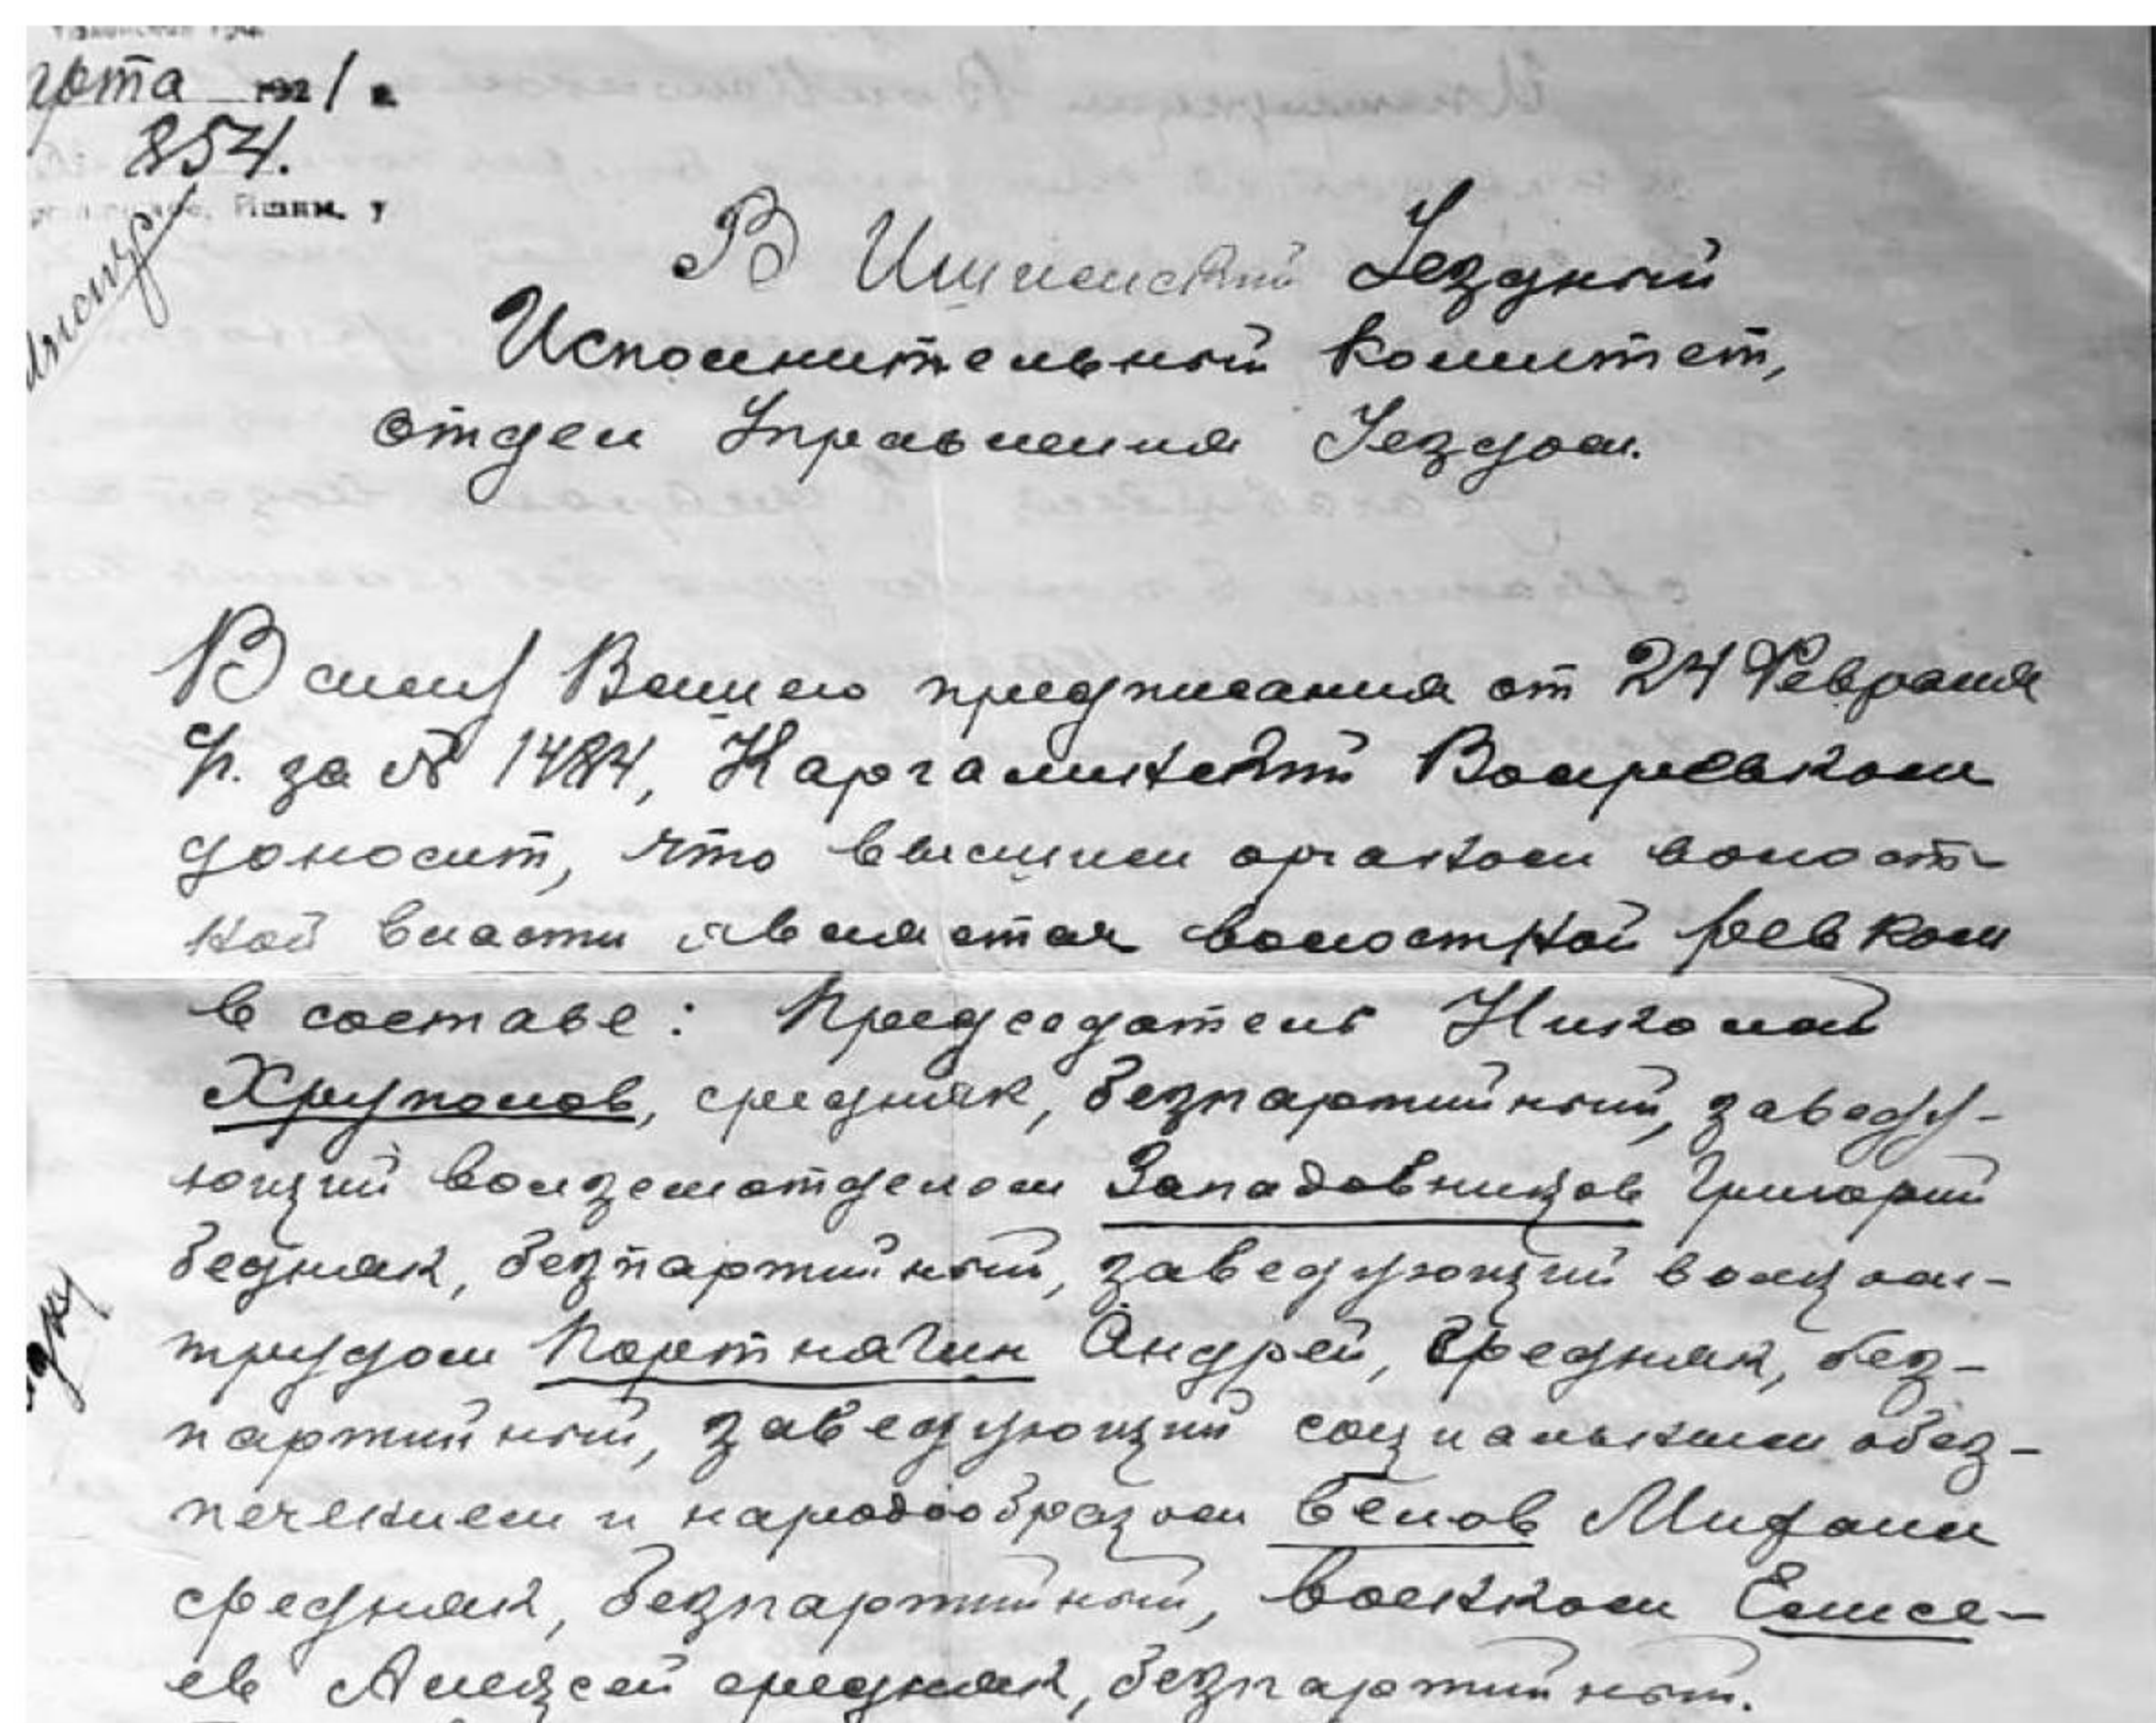 арта 1921 г.
854.
Ишим. у
В Ишимский Уездный
Исполнительный Комитет,
Отдел Управления Уездом.
В силу Вашего предписания от 24 Февраля
с/г. за № 1484, Каргалинский Волревком
доносит, что высшим органом волост-
ной власти является волостной ревком
в составе: Председатель Николай
Хруполов, средняк, безпартийный, заведу-
ющий волземотделом Западовников Григорий
бедняк, безпартийный, заведующий волком-
трудом Портнягин Андрей, средняк, без-
партийный, заведующий социальным обез-
печением и народобразом Белов Мифаил
средняк, безпартийный, военком Елисе-
ев Алексей средняк, безпартийный.